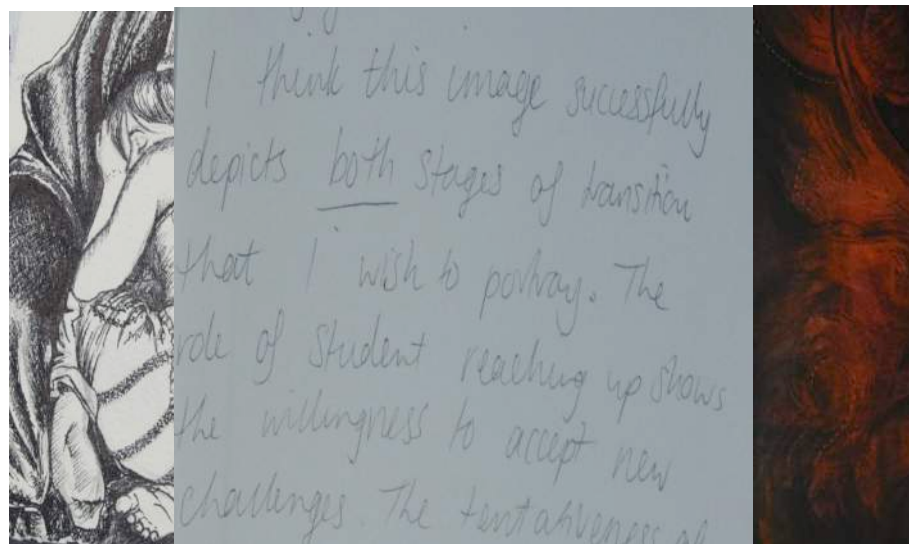 I think this image successfully
depicts both stages of transition
that I wish to portray. The
role of student reaching up shows
the willingness to accept new
challenges. The tentativeness of